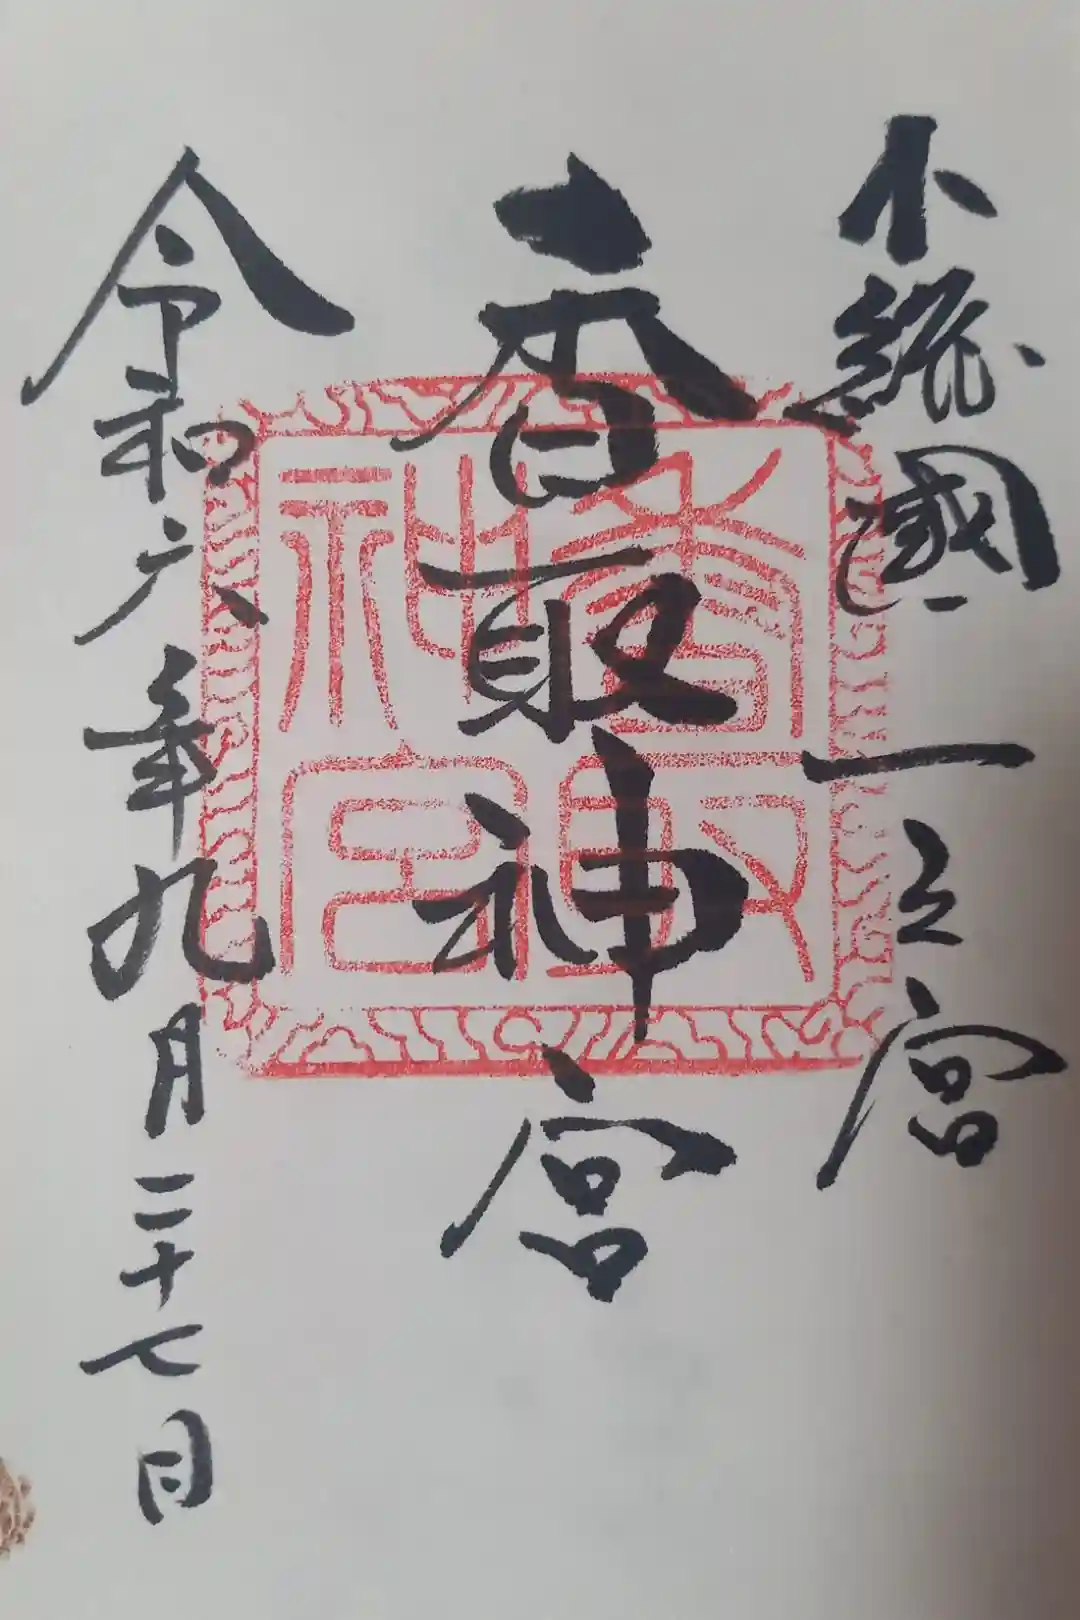 下総國一之宮
香取神宮
令和六年九月二十七日
香取
神宮